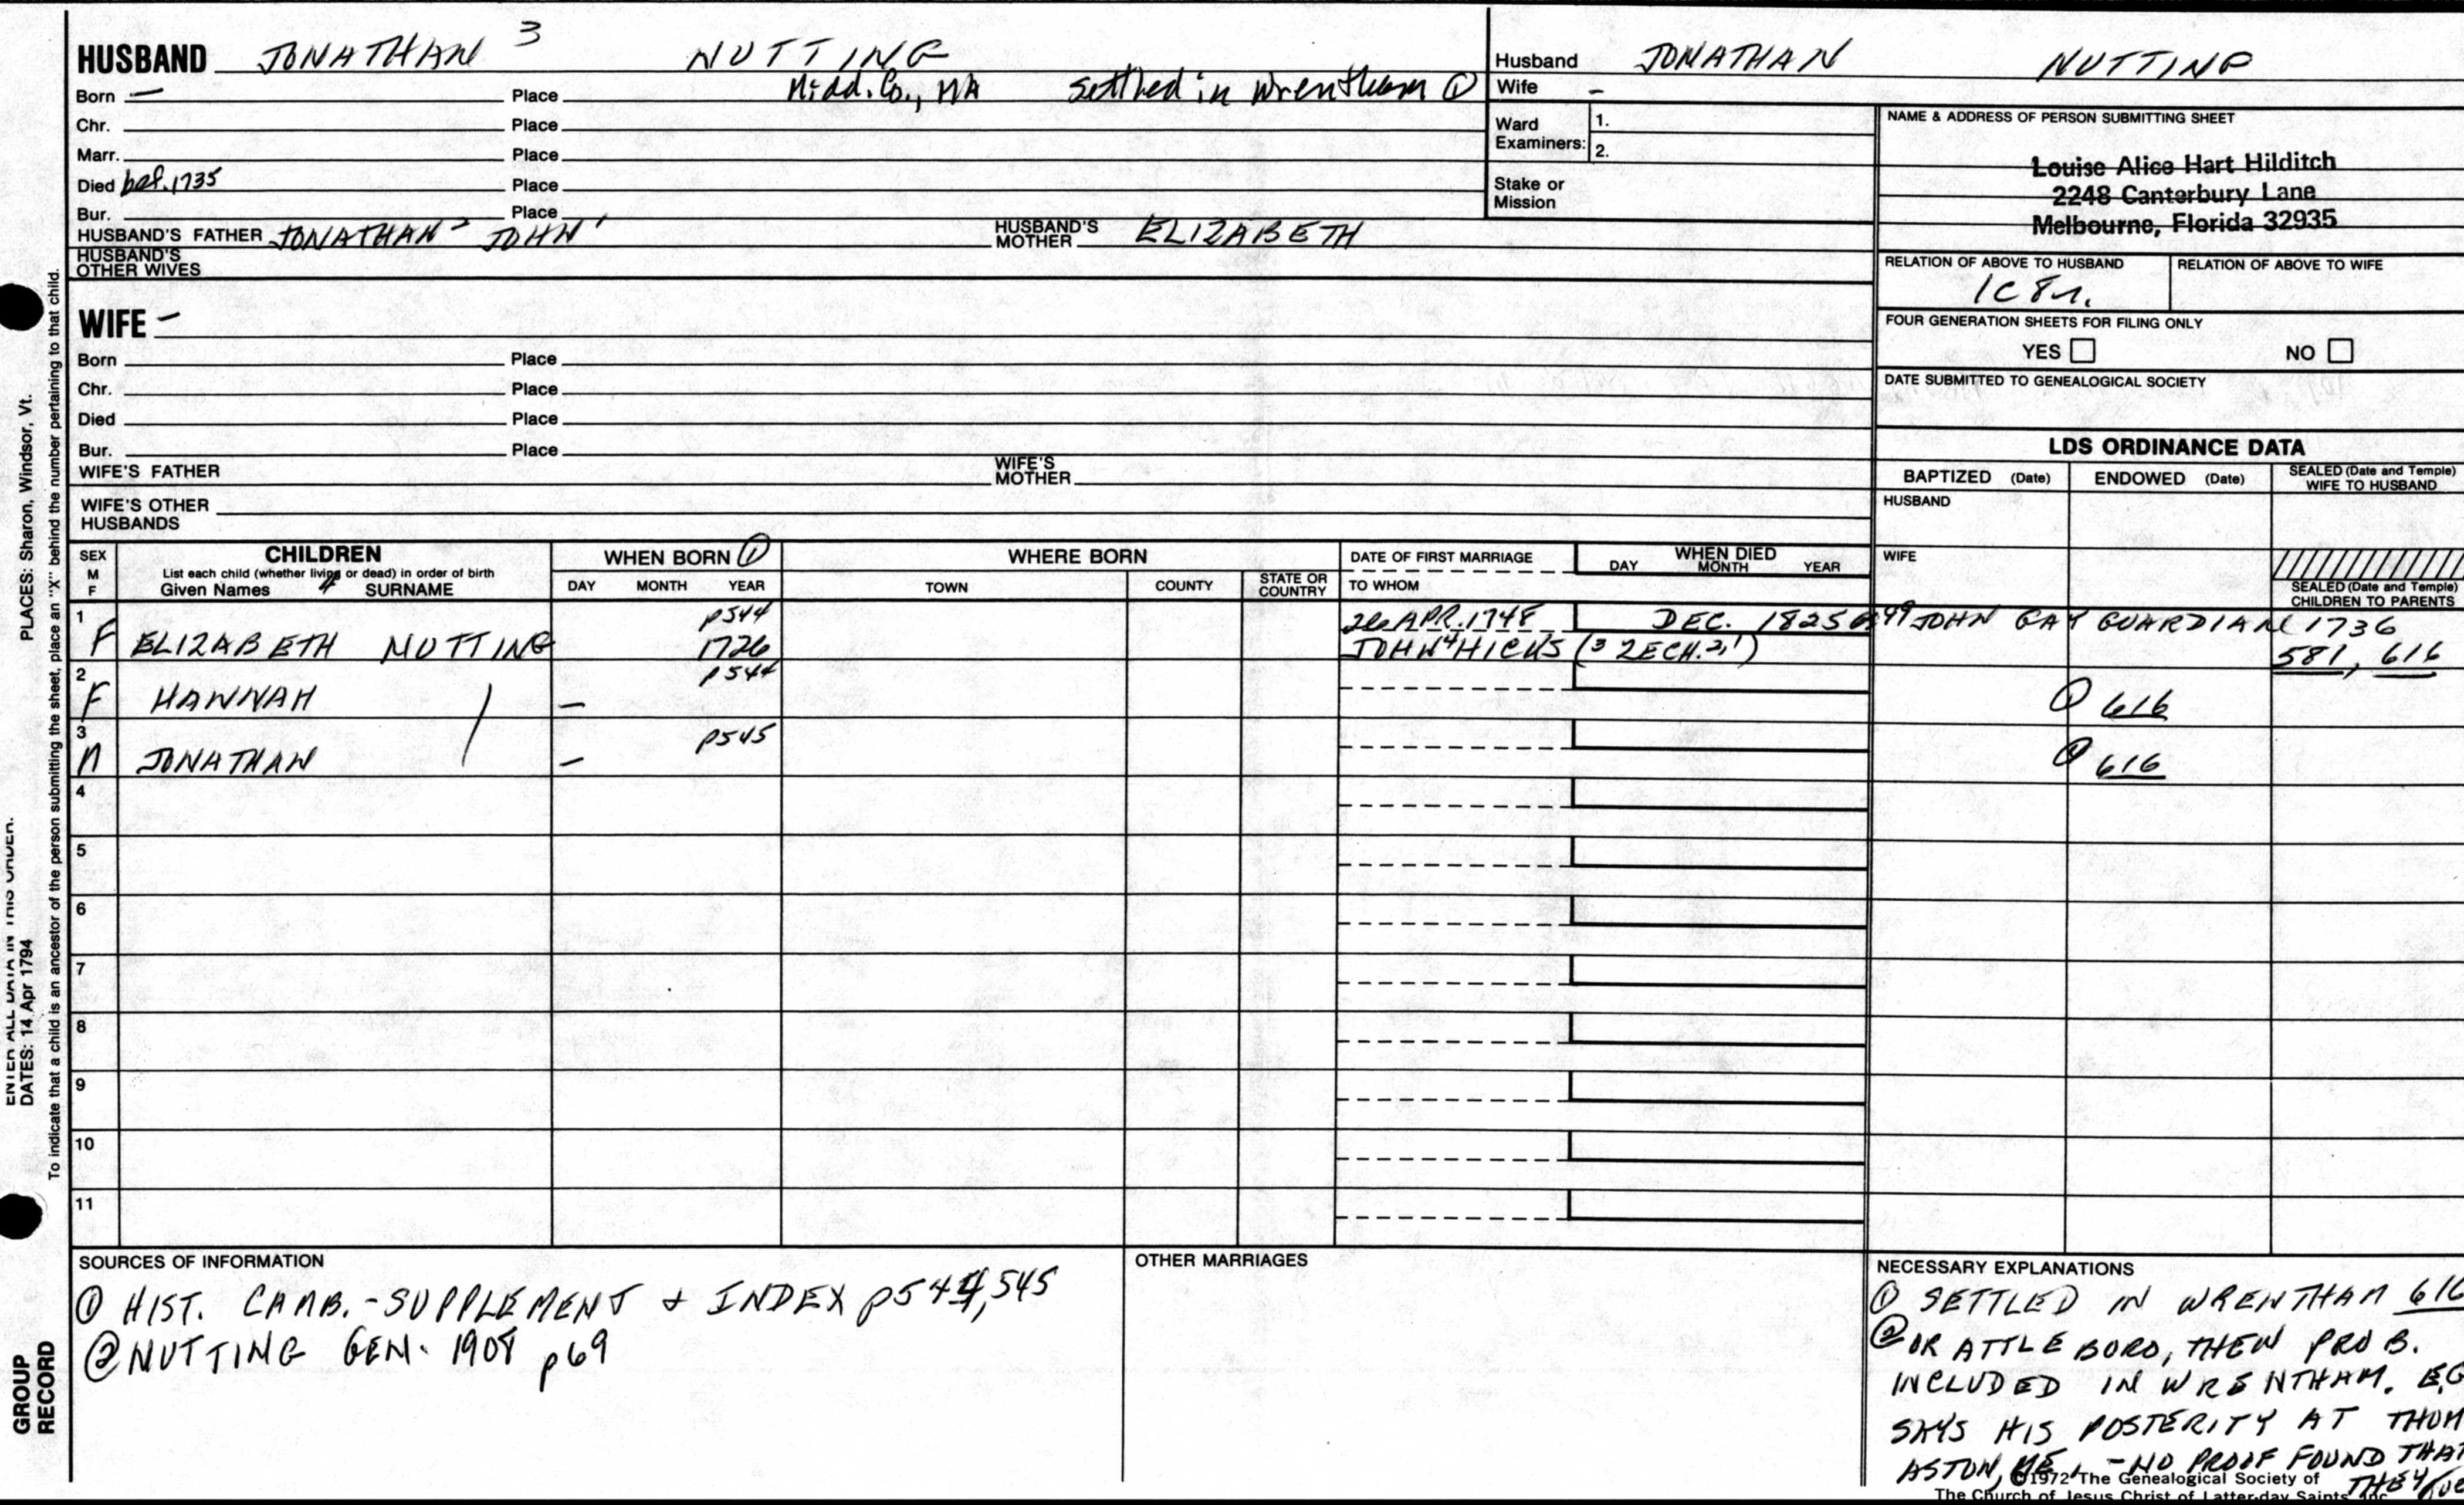 HUSBAND JONATHAN 3 NUTTING
Born — Place Midd. Co., MA settled in Wrentham ①
Chr. Place
Marr. Place
Died bef. 1735 Place
Bur. Place
HUSBAND'S FATHER JONATHAN 2 JOHN 1 HUSBAND'S MOTHER ELIZABETH
HUSBAND'S OTHER WIVES
WIFE —
Born Place
Chr. Place
Died Place
Bur. Place
WIFE'S FATHER WIFE'S MOTHER
WIFE'S OTHER HUSBANDS
Husband JONATHAN NUTTING
Wife –
Ward Examiners: 1.
2.
Stake or Mission
NAME & ADDRESS OF PERSON SUBMITTING SHEET
Louise Alice Hart Hilditch
2248 Canterbury Lane
Melbourne, Florida 32935
RELATION OF ABOVE TO HUSBAND RELATION OF ABOVE TO WIFE
1C 8r.
FOUR GENERATION SHEETS FOR FILING ONLY
YES NO
DATE SUBMITTED TO GENEALOGICAL SOCIETY
LDS ORDINANCE DATA
BAPTIZED (Date) ENDOWED (Date) SEALED (Date and Temple) WIFE TO HUSBAND
HUSBAND
WIFE
SEALED (Date and Temple) CHILDREN TO PARENTS
SEX M F
CHILDREN
List each child (whether living or dead) in order of birth
Given Names 4 SURNAME
WHEN BORN ①
DAY MONTH YEAR
WHERE BORN
TOWN COUNTY STATE OR COUNTRY
DATE OF FIRST MARRIAGE
TO WHOM
WHEN DIED
DAY MONTH YEAR
1 p544 26 APR. 1748 DEC. 1825 JOHN GAY GUARDIAN 1736
F ELIZABETH NUTTING 1726 JOHN 4 HICKS (3 ZECH. 2, 1) 581, 616
2 p544
F HANNAH — ① 616
3 p545
M JONATHAN — ① 616
4
5
6
7
8
9
10
11
SOURCES OF INFORMATION
① HIST. CAMB. - SUPPLEMENT + INDEX p544, 545
② NUTTING GEN. 1908 p69
OTHER MARRIAGES
NECESSARY EXPLANATIONS
① SETTLED IN WRENTHAM 616
② OR ATTLEBORO, THEN PROB.
INCLUDED IN WRENTHAM.
SAYS HIS POSTERITY AT THOM
ASTON, ME. - NO PROOF FOUND THAT
THEY
©1972 The Genealogical Society of
The Church of Jesus Christ of Latter-day Saints, Inc.
PLACES: Sharon, Windsor, Vt.
To indicate that a child is an ancestor of the person submitting the sheet, place an "X" behind the number pertaining to that child.
ENTER ALL DATA IN THIS ORDER:
DATES: 14 Apr 1794
GROUP
RECORD